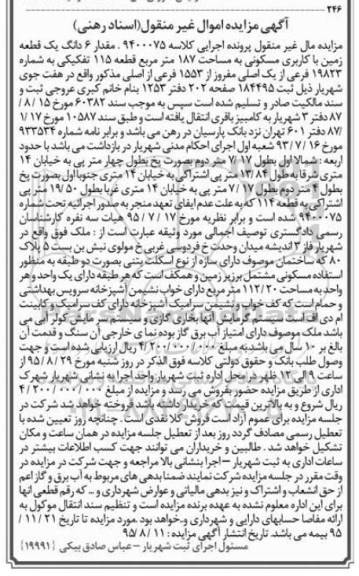 ۲۴۶
آگهی مزایده اموال غیر منقول(اسناد رهنی)
مزایده مال غیر منقول پرونده اجرایی کلاسه ۹۴۰۰۰۷۵ . مقدار ۶ دانگ یک قطعه
زمین با کاربری مسکونی به مساحت ۱۸۷ متر مربع قطعه ۱۱۵ تفکیکی به شماره
۱۹۸۲۳ فرعی از یک اصلی مفروز از ۱۵۵۳ فرعی از اصلی مذکور واقع در هفت جوی
شهریار ذیل ثبت ۱۸۴۴۹۵ صفحه ۲۰۲ دفتر ۱۲۵۳ بنام خانم کبری عروجی ثبت و
سند مالکیت صادر و تسلیم شده است سپس به موجب سند ۶۰۳۸۲ مورخ ۱۵ / ۸ /
۸۷ دفتر ۳ شهریار به کامبیز باقری انتقال یافته است و طبق سند ۱۰۵۸۷ مورخ ۱/۱۷
/۸۷ دفتر ۶۰۱ تهران نزد بانک پارسیان در رهن می باشد و برابر نامه شماره ۹۳۳۵۳۴
مورخ ۱۶ / ۷ / ۹۳ شعبه اول اجرای احکام مدنی شهریار در بازداشت می باشد با حدود
اربعه : شمالا اول بطول ۷/۰۷ متر دوم بصورت پخ بطول چهار متر پی به خیابان ۱۴
متری شرقا بطول ۱۳/۸۴ متر پی اشتراکی به خیابان ۱۴ متری جنوبا اول بصورت پخ
بطول ۴ متر دوم بطول ۷/۰۷ متر پی به خیابان ۱۴ متری غربا بطول ۱۹/۵۰ متر پی
اشتراکی به قطعه ۱۱۴ که به علت عدم ایفای تعهد منجر به صدور اجرائیه تحت شماره
۹۴۰۰۰۷۵ شده است و برابر نظریه مورخ ۱۷ / ۷ / ۹۵ هیات سه نفره کارشناسان
رسمی دادگستری توصیف اجمالی مورد وثیقه عبارت است از : ملک فوق واقع در
شهریار فاز ۳ اندیشه میدان وحدت خ فردوسی غربی خ مولوی نبش بن بست ۵ پلاک
۸۰ که ساختمان موصوف دارای سازه از نوع اسکلت بتنی بصورت دو طبقه به منظور
استفاده مسکونی مشتمل بر زیر زمین و همکف است که هر طبقه دارای یک واحد و هر
واحد به مساحت ۱۱۲/۲۰ متر مربع دارای خواب نشیمن آشپزخانه سرویس بهداشتی
و حمام است که کف خواب و نشیمن سرامیک آشپزخانه دارای کف سرامیک و کابینت
ام دی اف است سیستم گرمایش آنها بخاری گازی و سیستم سرمایش کولر آبی می
باشد ملک موصوف دارای امتیاز آب برق گاز بوده نمای خارجی آن سنگ و قدمت آن
بالغ بر ۱۰ سال می باشد به مبلغ ۴/۲۰۰/۰۰۰/۰۰۰ ریال ارزیابی شده است و جهت
وصول طلب بانک و حقوق دولتی کلاسه فوق الذکر در روز شنبه مورخ ۲۹ / ۸ / ۹۵ از
ساعت ۹ الی ۱۲ ظهر در محل اداره ثبت شهریار واحد اجرا به نشانی شهریار شهرک
اداری از طریق مزایده حضور بفروش می رسد و مزایده از مبلغ ۴/۲۰۰/۰۰۰/۰۰۰
ریال شروع و به بالاترین قیمت که خریدار داشته باشد فروخته خواهد شد شرکت در
جلسه مزایده برای عموم آزاد است فروش کلا نقدی است . چنانچه روز تعیین شده با
تعطیل رسمی مصادف گردد روز بعد از تعطیل جلسه مزایده در همان ساعت و مکان
تشکیل خواهد شد . طالبین و خریداران می توانند جهت کسب اطلاعات بیشتر در
ساعات اداری به ثبت شهریار - اجرا بنشانی بالا مراجعه و جهت شرکت در مزایده در
وقت مقرر در جلسه مزایده شرکت نمایند ضمنا بدهی های مربوط به آب برق و گاز اعم
از حق انشعاب و اشتراک و نیز بدهی مالیاتی و عوارض شهرداری و ... که رقم قطعی آنها
برای این اداره معلوم نشده به عهده برنده مزایده است و تنظیم سند انتقال موکول به
ارائه مفاصا حسابهای دارایی و شهرداری و.خواهد بود .مورد مزایده تا تاریخ ۲۱ / ۱۱ /
۹۵ بیمه می باشد. تاریخ انتشار آگهی مزایده : ۱۱ / ۸ /۹۵
مسئول اجرای ثبت شهریار – عباس صادق بیکی (۱۹۹۹۱)